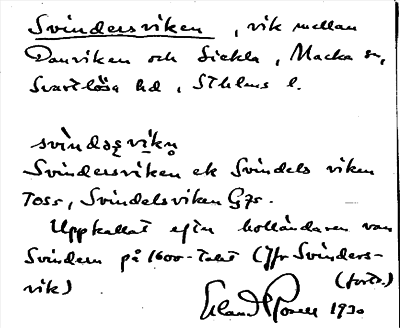 Svindersviken, vik mellan
Danviken och Sickla, Nacka sn,
Svartlösa hd, Sthlms l.
svìndəʂvi̱kən
Svindersviken ek Svindels viken
Toss, Svindelsviken Gzs.
Uppkallat efter holländaren van
Svindern på 1600-talet (Jfr Svinders-
vik)
(forts.)
Erland Rosell 1930